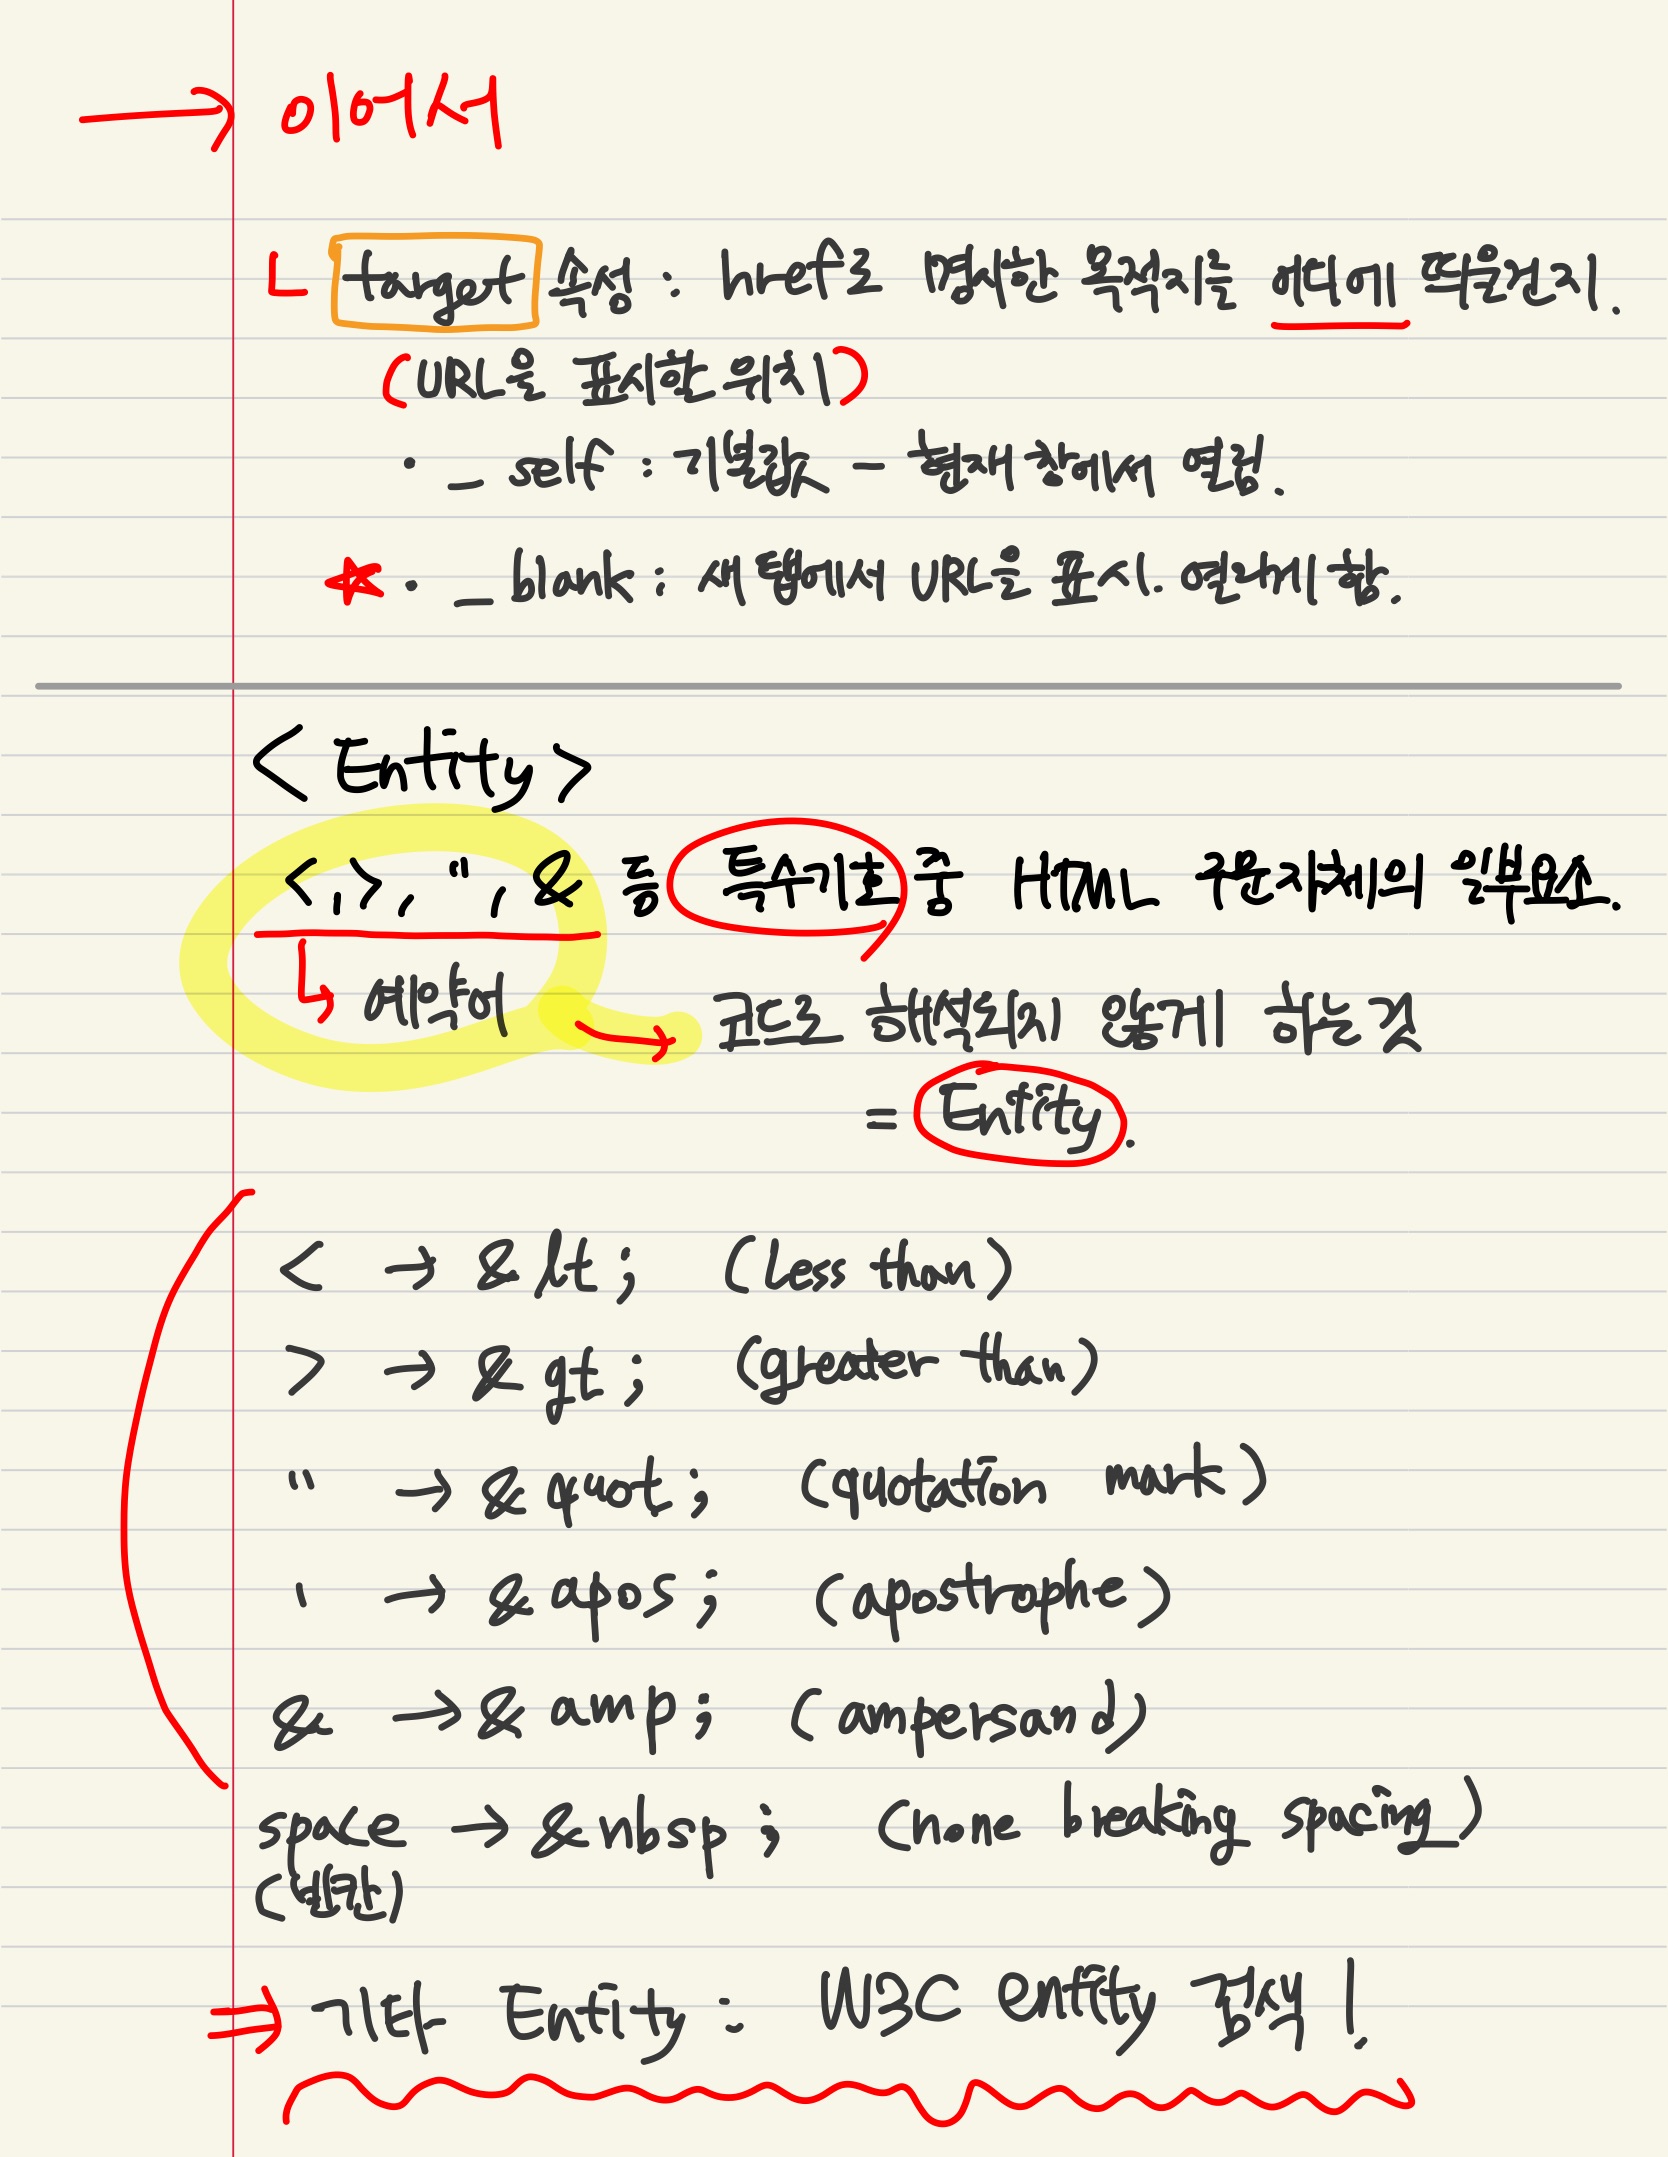 → 이어서
ㄴ target 속성 : href로 명시한 목적지를 어디에 띄울건지.
(URL을 표시할 위치)
· _ self : 기본값 - 현재 창에서 열림.
★ · _ blank : 새 탭에서 URL을 표시. 열리게 함.
< Entity >
<, >, ", & 등 특수기호 중 HTML 구문자체의 일부요소.
↳ 예약어 → 코드로 해석되지 않게 하는 것
= Entity.
< → &lt; (less than)
> → &gt; (greater than)
" → &quot; (quotation mark)
' → &apos; (apostrophe)
& → &amp; (ampersand)
space → &nbsp; (none breaking spacing)
(빈칸)
⇒ 기타 Entity : W3C entity 검색!